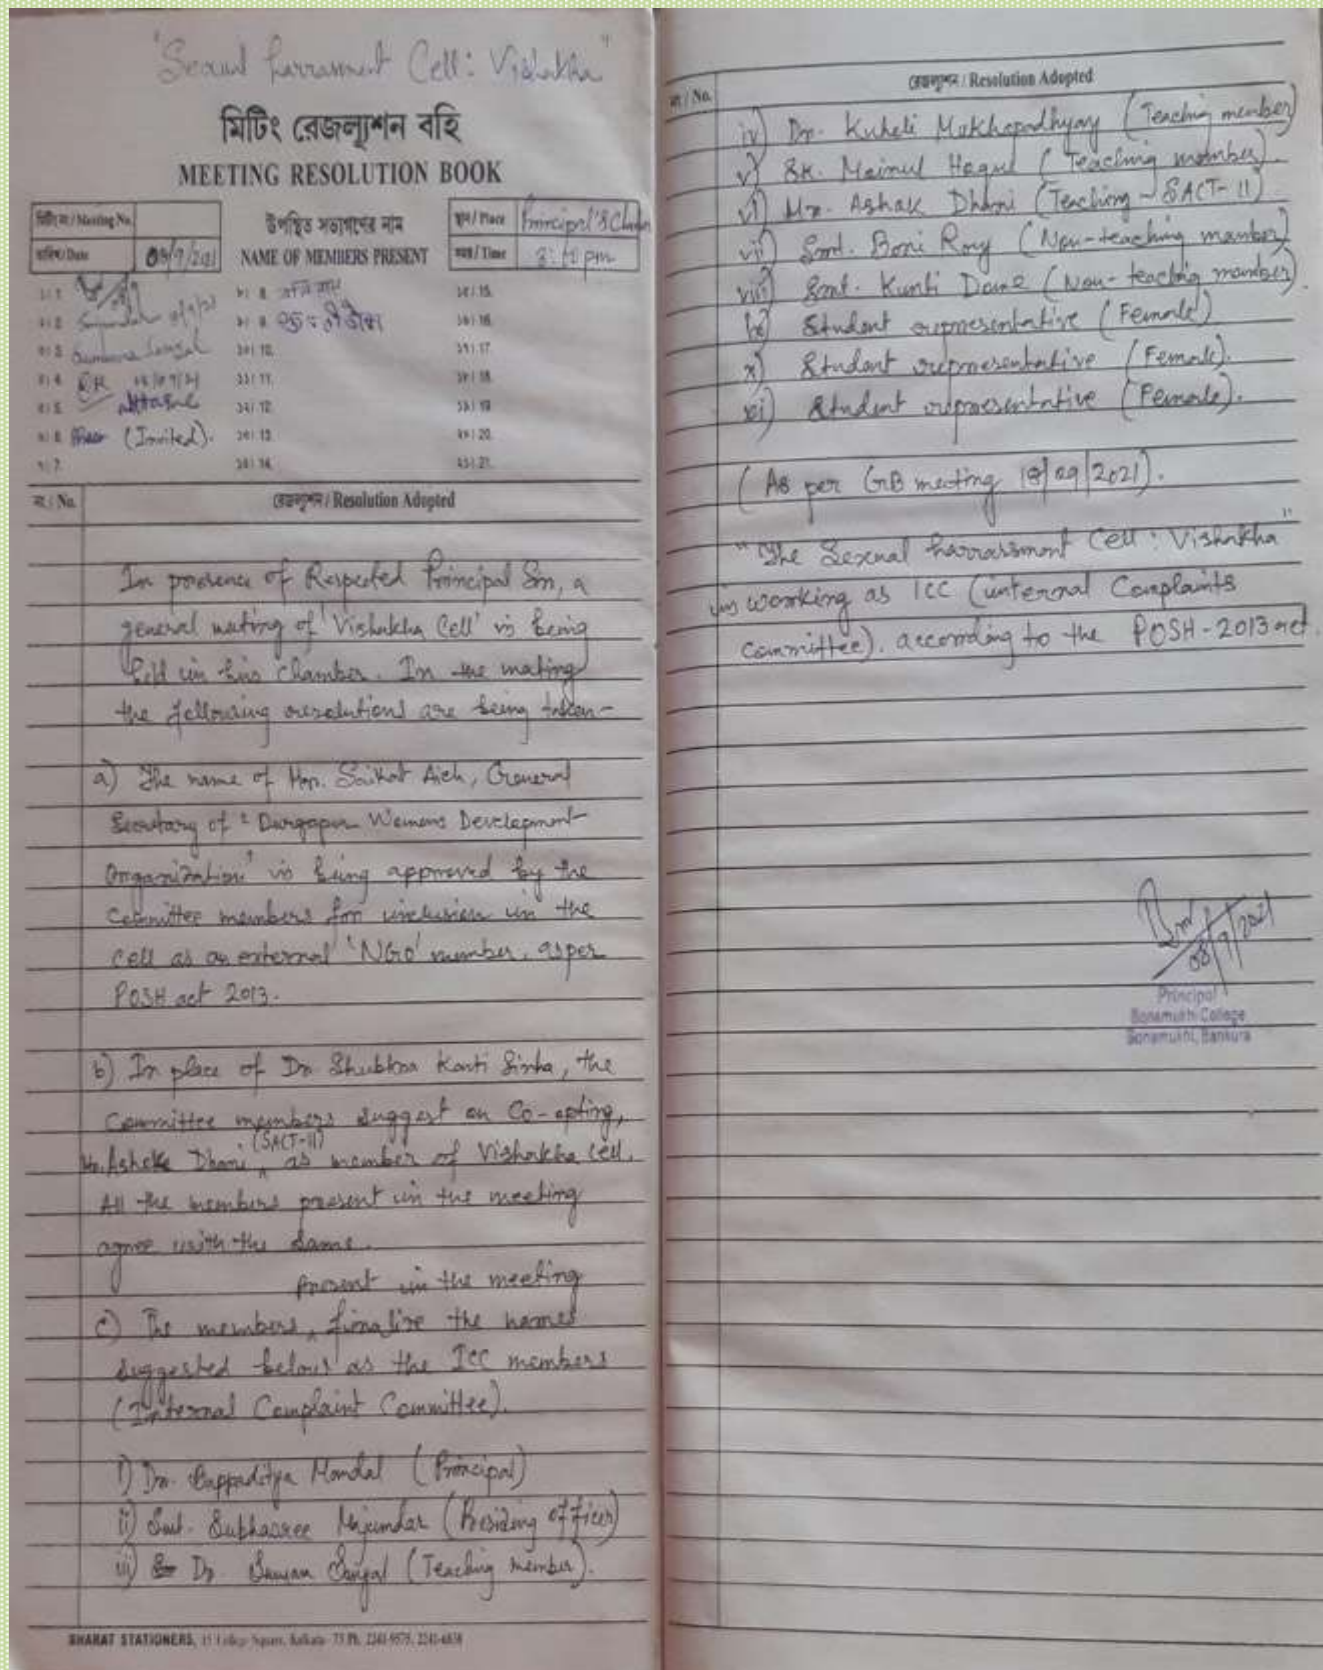 "Sexual harrasment Cell: Vishakha"
মিটিং রেজল্যুশন বহি
MEETING RESOLUTION BOOK
মিটিং নং / Meeting No.
উপস্থিত সভ্যগণের নাম
স্থান / Place Principal's
তারিখ / Date
NAME OF MEMBERS PRESENT
সময় / Time
১। 1.
৮। 8.
১৫। 15.
২। 2.
৯। 9.
১৬। 16.
৩। 3.
১০। 10.
১৭। 17.
৪। 4.
১১। 11.
১৮। 18.
৫। 5.
১২। 12.
১৯। 19.
৬। 6. (Invited).
১৩। 13.
২০। 20.
৭। 7.
১৪। 14.
২১। 21.
নং / No.
রেজল্যুশন / Resolution Adopted
In presence of Respected Principal Sir, a
general meeting of 'Vishakha Cell' is being
held in his chamber. In the meeting
the following resolutions are being taken-
a) The name of Mr. Saikat Aich, General
Secretary of 'Durgapur Womens Development
Organization' is being approved by the
Committee members for inclusion in the
cell as an external 'NGO' member, as per
POSH act 2013.
b) In place of Dr Shubhra Kanti Sinha, the
Committee members suggest on Co-opting,
(SACT-II)
Mr. Ashoke Dhani, as member of Vishakha Cell.
All the members present in the meeting
agree with the same.
present in the meeting
c) The members, finalize the names
suggested below as the ICC members
(Internal Complaint Committee).
i) Dr. Bappaditya Mandal (Principal)
ii) Smt. Subhasree Majumdar (Presiding officer)
iii) Dr. Suman Sanyal (Teaching member).
BHARAT STATIONERS, 15 College Square, Kolkata-73
নং / No.
রেজল্যুশন / Resolution Adopted
iv) Dr. Kuheli Mukhopadhyay (Teaching member)
v) SK. Mainul Haque (Teaching member).
vi) Mr. Ashok Dhani (Teaching - SACT-II)
vii) Smt. Boni Roy (Non-teaching member)
viii) Smt. Kunti Dome (Non-teaching member).
ix) Student representative (Female)
x) Student representative (Female).
xi) Student representative (Female).
(As per GB meeting 18/09/2021).
"The Sexual harrassment Cell: Vishakha"
is working as ICC (internal Complaints
Committee). according to the POSH-2013 act.
08/9/2021
Principal
Sonamukhi College
Sonamukhi, Bankura